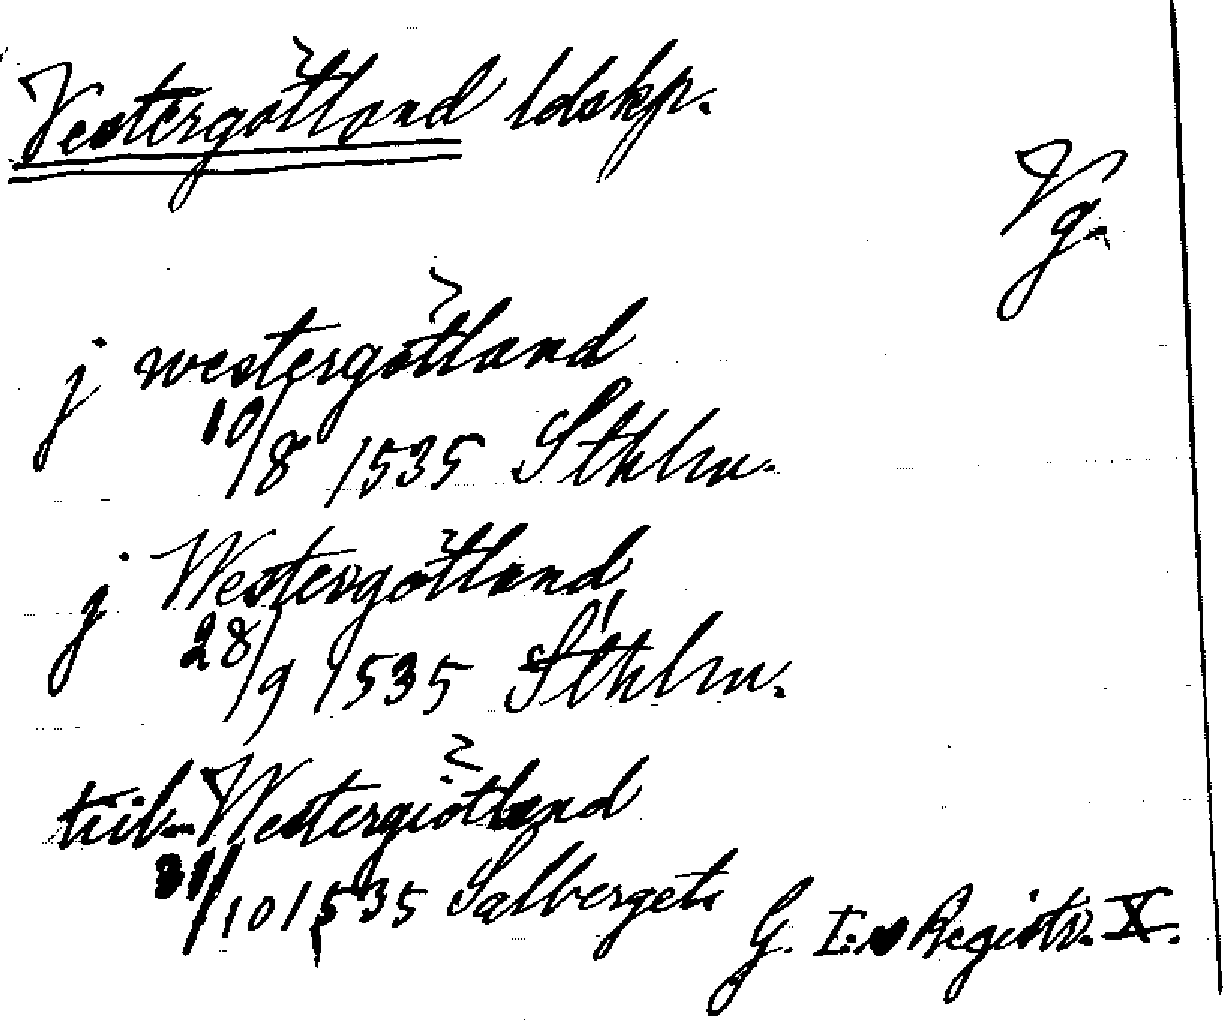 Vestergötland ldskp.
Vg.
j westergötland
10/8 1535 Sthlm.
j Westergötland
28/9 1535 Sthlm.
till Westergiötland
31/10 1535 Salberget
G. I:s Registr. X.